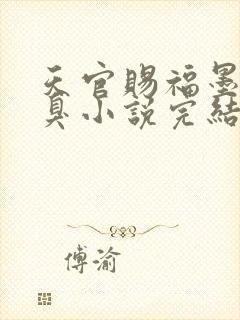 天官賜福墨
臭小說完結
傅渝